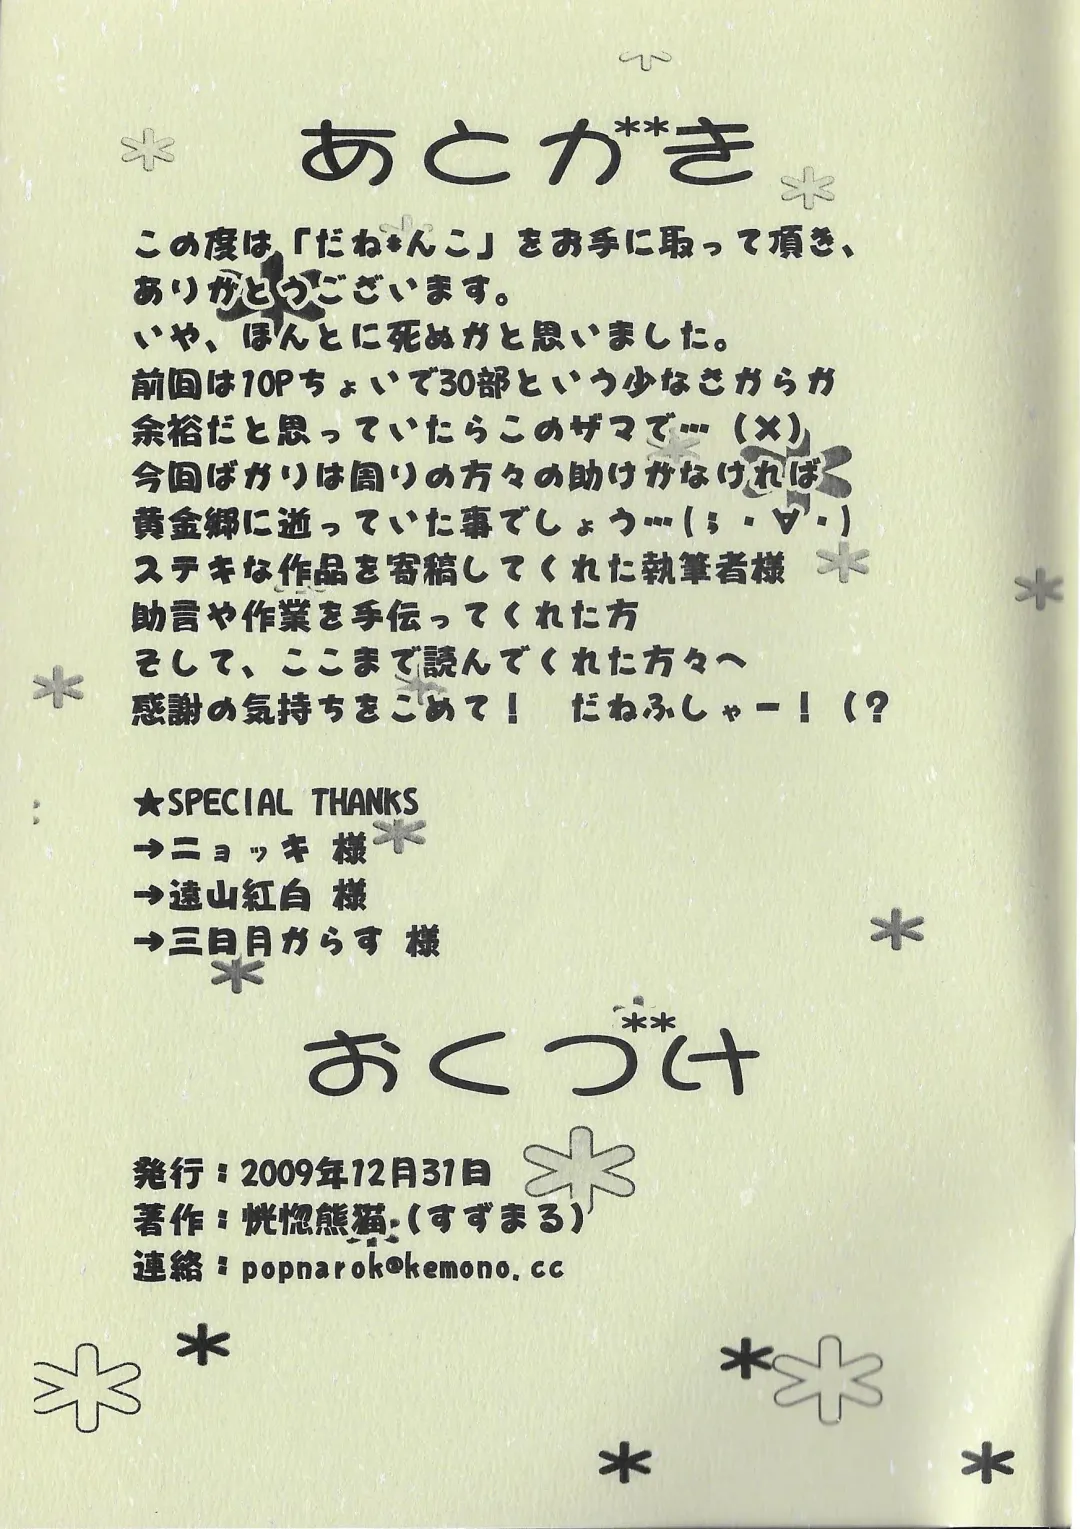 あとがき
この度は、「だね*んこ」をお手に取って頂き、
ありがとうございます。
いや、ほんとに死ぬかと思いました。
前回は10Pちょいで30部という少なさからか
余裕だと思っていたらこのザマで…（×）
今回ばかりは周りの方々の助けがなければ
黄金郷に逝っていた事でしょう…(；・∀・)
ステキな作品を寄稿してくれた執筆者様
助言や作業を手伝ってくれた方
そして、ここまで読んでくれた方々へ
感謝の気持ちをこめて！　だねふしゃー！（?
★SPECIAL THANKS
→ニョッキ 様
→遠山紅白 様
→三日月からす 様
おくづけ
発行：2009年12月31日
著作：恍惚熊猫（すずまる）
連絡：popnarok@kemono.cc